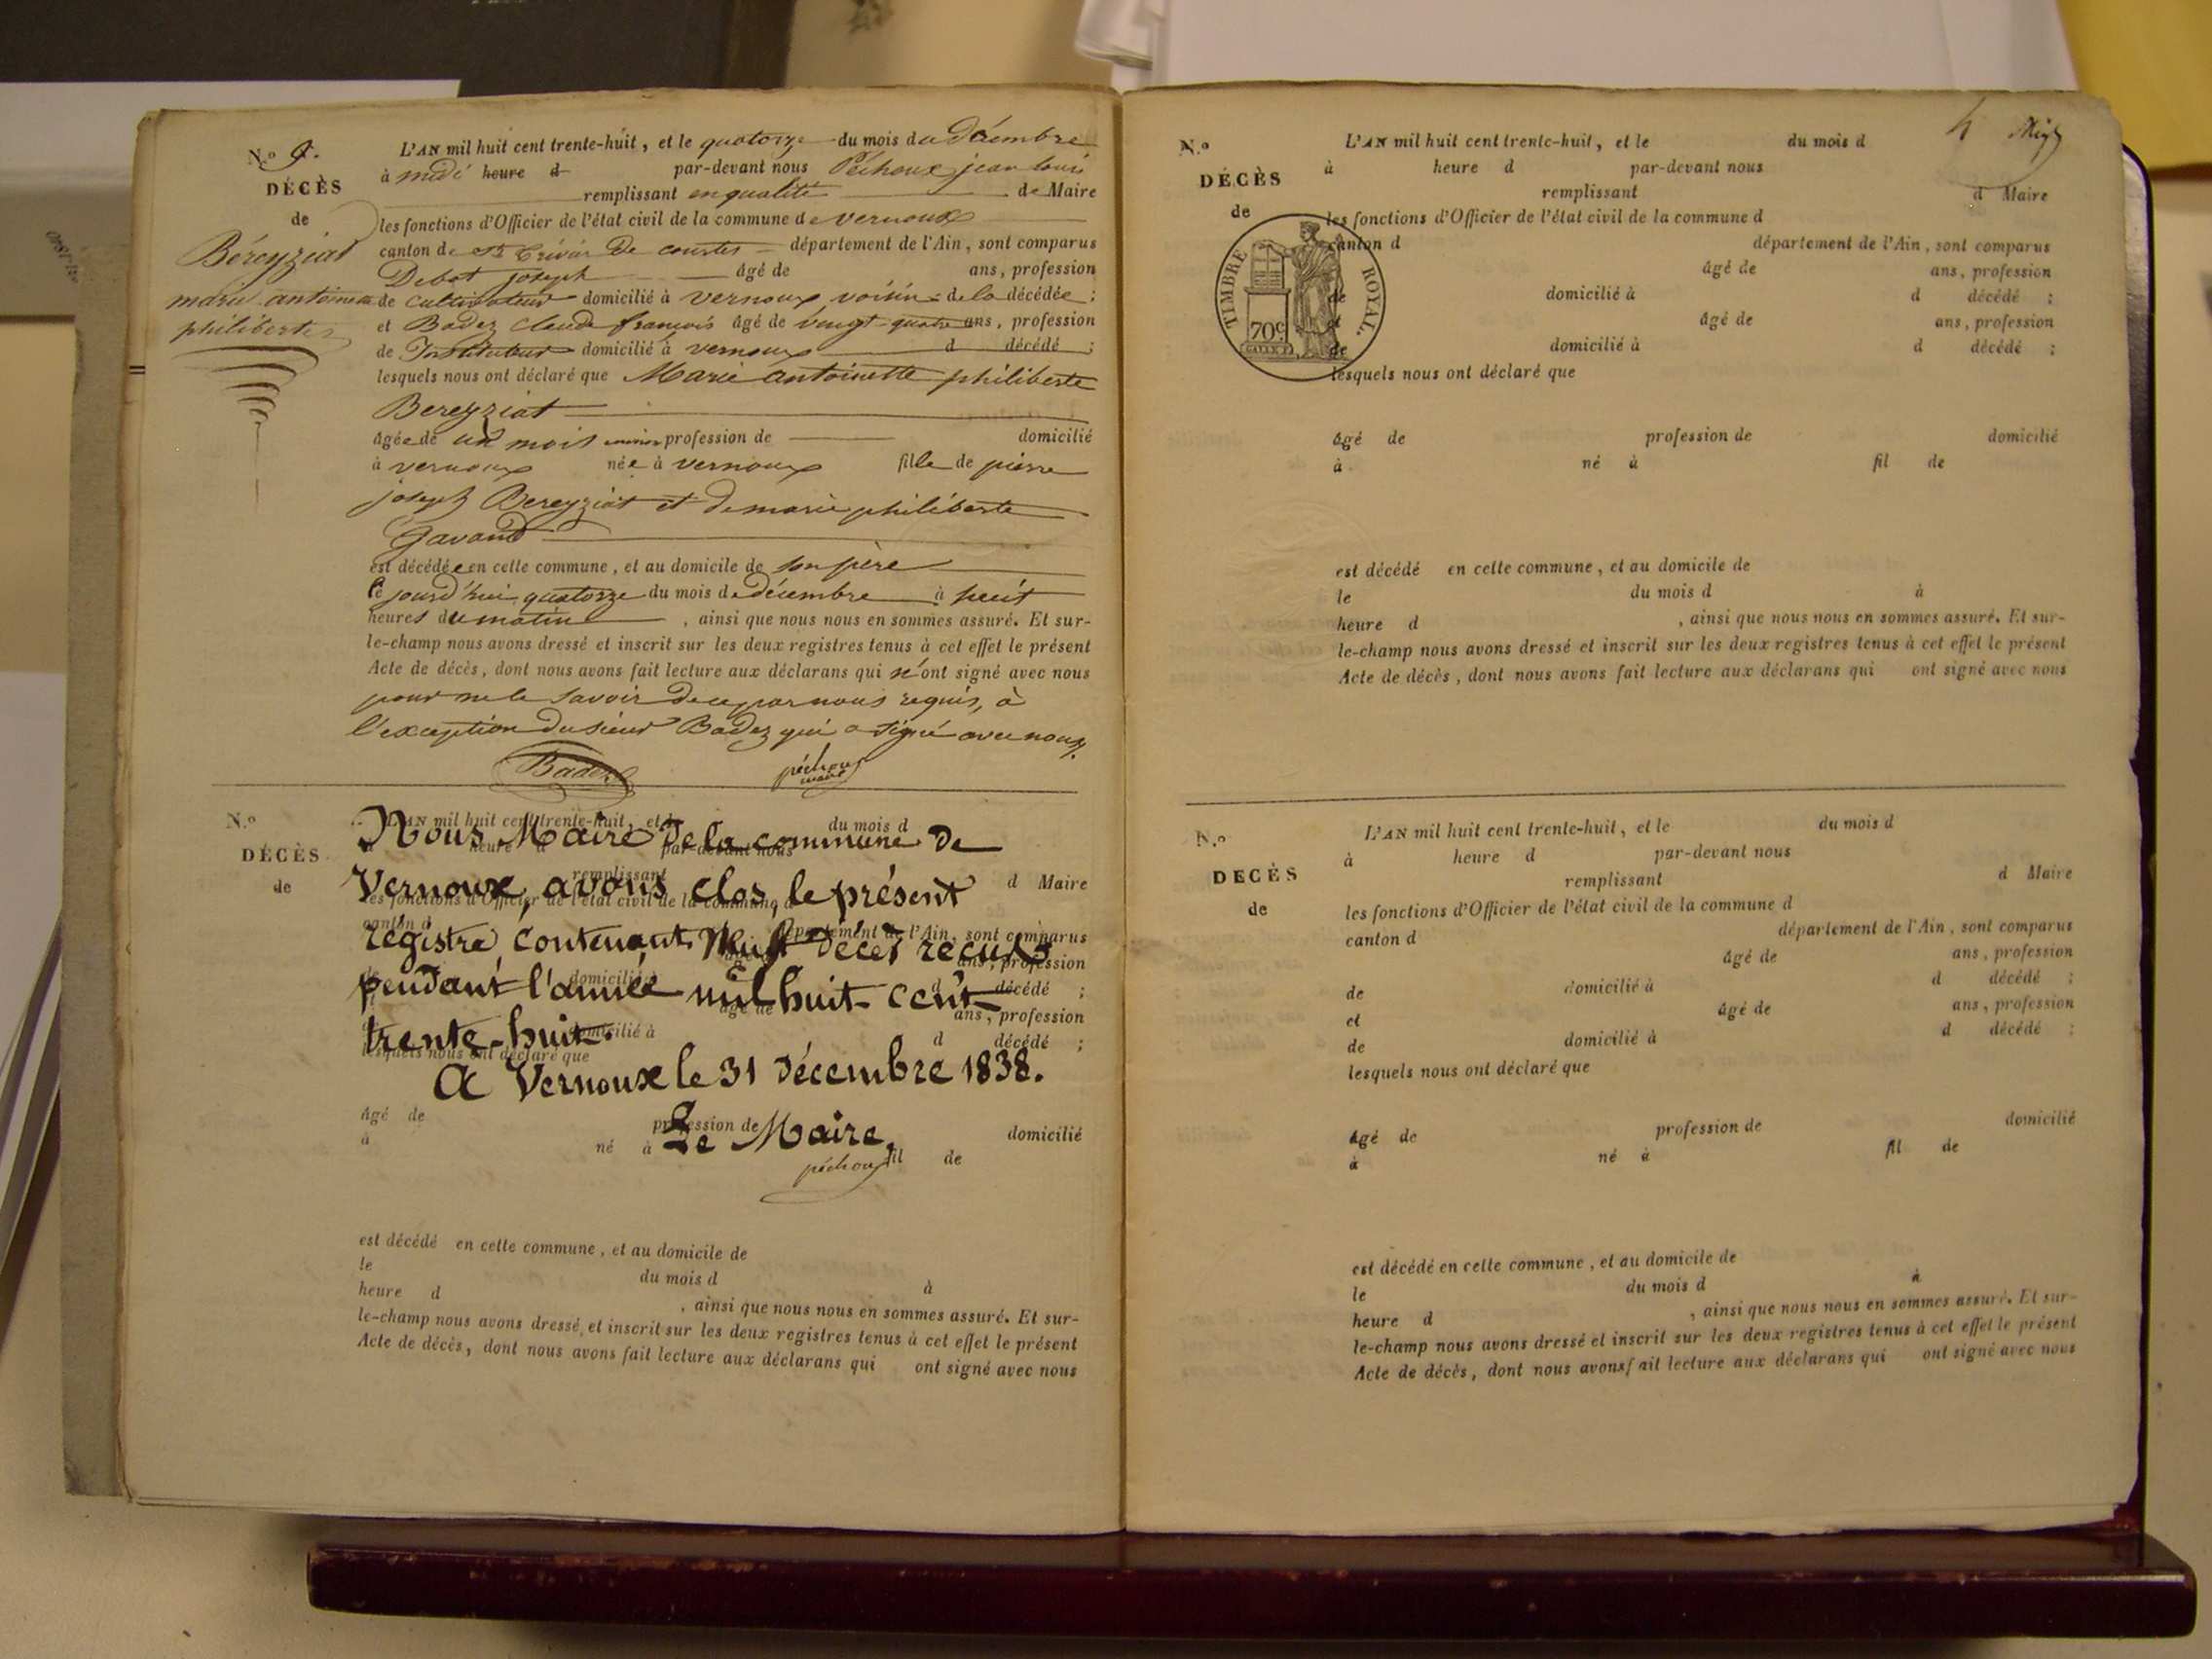 N.o 9.
DÉCÈS
de
Béreyziat
marie antoinette
philiberte
L'AN mil huit cent trente-huit, et le quatorze du mois du décembre
à midi heure d par-devant nous Péchoux jean louis
remplissant en qualité de Maire
les fonctions d'Officier de l'état civil de la commune de vernoux
canton de St Trivier De courtes département de l'Ain, sont comparus
Debot joseph âgé de ans, profession
de cultivateur domicilié à vernoux voisin de la décédée;
et Badez Claude françois âgé de vingt-quatre ans, profession
de Instituteur domicilié à vernoux d décédé;
lesquels nous ont déclaré que Marie antoinette philiberte
Bereyziat
âgée de un mois profession de domicilié
à vernoux née à vernoux fille de pierre
joseph Bereyziat et de marie philiberte
Gavand
est décédée en cette commune, et au domicile de son père
le jourd'hui quatorze du mois de décembre à huit
heures du matin, ainsi que nous nous en sommes assuré. Et sur-
le-champ nous avons dressé et inscrit sur les deux registres tenus à cet effet le présent
Acte de décès, dont nous avons fait lecture aux déclarans qui n'ont signé avec nous
pour ne le savoir de ce par nous requis, à
l'exception du sieur Badez qui a signé avec nous.
Badez péchoux
maire
N.o
DÉCÈS
de
L'AN mil huit cent trente-huit, et le du mois d
heure d par-devant nous
remplissant d Maire
les fonctions d'Officier de l'état civil de la commune d
canton d département de l'Ain, sont comparus
âgé de ans, profession
de domicilié à d décédé;
âgé de ans, profession
domicilié à d décédé;
lesquels nous ont déclaré que
Nous Maire de la commune de
Vernoux, avons clos, le présent
régistre, contenant Neuf décès reçus
pendant l'année mil huit-cent
trente-huit.
A Vernoux le 31 décembre 1838.
Le Maire,
péchoux
âgé de profession de domicilié
à né à fil de
est décédé en cette commune, et au domicile de
le du mois d à
heure d, ainsi que nous nous en sommes assuré. Et sur-
le-champ nous avons dressé et inscrit sur les deux registres tenus à cet effet le présent
Acte de décès, dont nous avons fait lecture aux déclarans qui ont signé avec nous
4
N.o
DÉCÈS
de
TIMBRE ROYAL.
70c
L'AN mil huit cent trente-huit, et le du mois d
à heure d par-devant nous
remplissant d Maire
les fonctions d'Officier de l'état civil de la commune d
canton d département de l'Ain, sont comparus
âgé de ans, profession
de domicilié à d décédé;
et âgé de ans, profession
de domicilié à d décédé;
lesquels nous ont déclaré que
âgé de profession de domicilié
à né à fil de
est décédé en cette commune, et au domicile de
le du mois d à
heure d, ainsi que nous nous en sommes assuré. Et sur-
le-champ nous avons dressé et inscrit sur les deux registres tenus à cet effet le présent
Acte de décès, dont nous avons fait lecture aux déclarans qui ont signé avec nous
N.o
DÉCÈS
de
L'AN mil huit cent trente-huit, et le du mois d
à heure d par-devant nous
remplissant d Maire
les fonctions d'Officier de l'état civil de la commune d
canton d département de l'Ain, sont comparus
âgé de ans, profession
de domicilié à d décédé;
et âgé de ans, profession
de domicilié à d décédé;
lesquels nous ont déclaré que
âgé de profession de domicilié
à né à fil de
est décédé en cette commune, et au domicile de
le du mois d à
heure d, ainsi que nous nous en sommes assuré. Et sur-
le-champ nous avons dressé et inscrit sur les deux registres tenus à cet effet le présent
Acte de décès, dont nous avons fait lecture aux déclarans qui ont signé avec nous